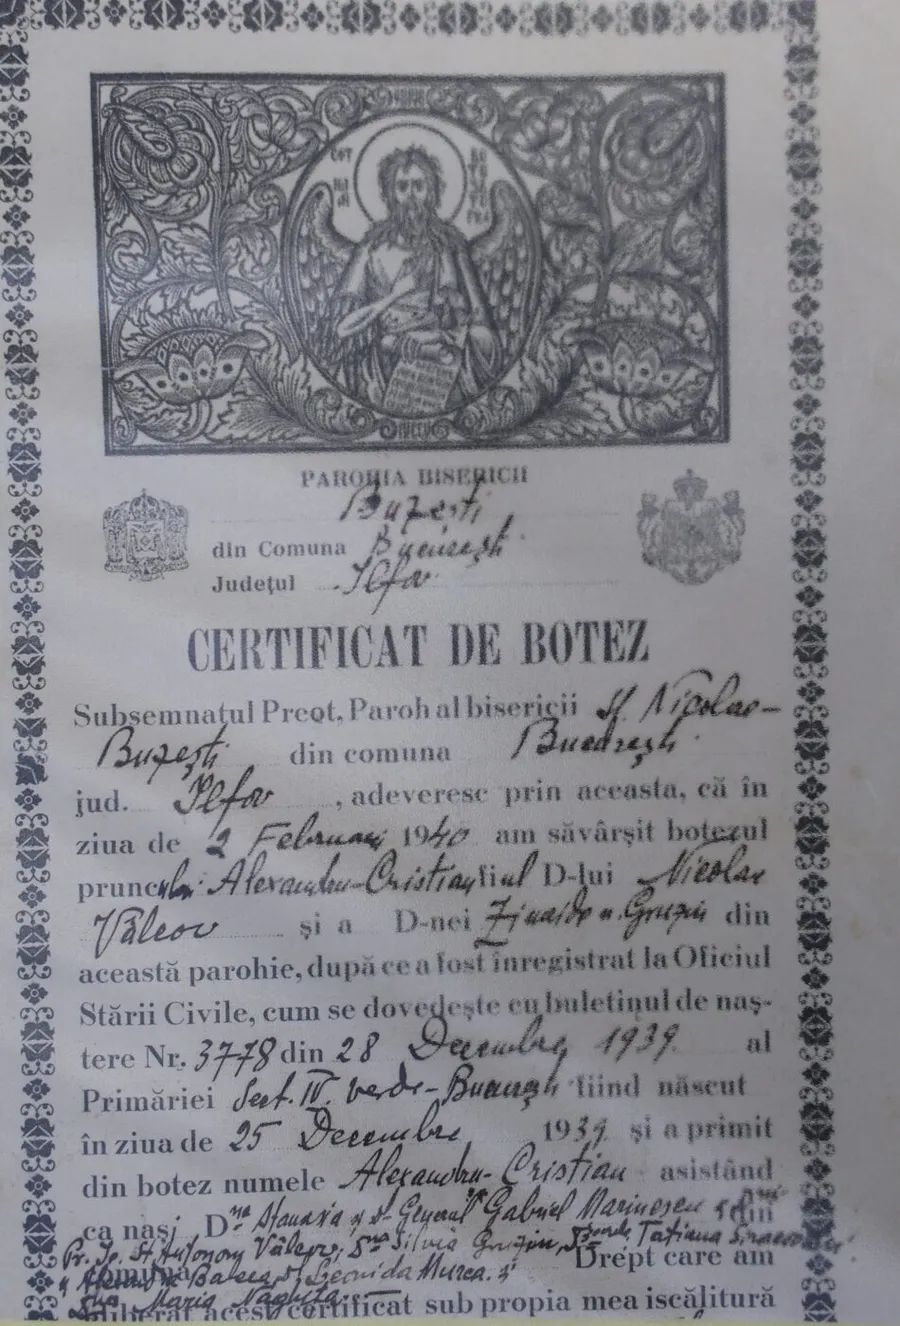 PAROHIA BISERICII
Buzești
din Comuna București
Județul Ilfov
CERTIFICAT DE BOTEZ
Subsemnatul Preot, Paroh al bisericii sf. Nicolae-
Buzești din comuna București
jud. Ilfov, adeveresc prin aceasta, că în
ziua de 2 Februarie 1940 am săvârșit botezul
pruncului Alexandru-Cristian fiul D-lui Nicolae
Vâlcov și a D-nei din
această parohie, după ce a fost înregistrat la Oficiul
Stării Civile, cum se dovedește cu buletinul de naș-
tere Nr. 3778 din 28 Decembre 1939 al
Primăriei Sect. IV. verde-București fiind născut
în ziua de 25 Decembre 1939 și a primit
din botez numele Alexandru-Cristian asistând
ca nași D-na General Gabriel Marinescu din
Vâlcov, Silvia Tatiana
comuna Leonida Drept care am
Maria
eliberat acest certificat sub propia mea iscălitură